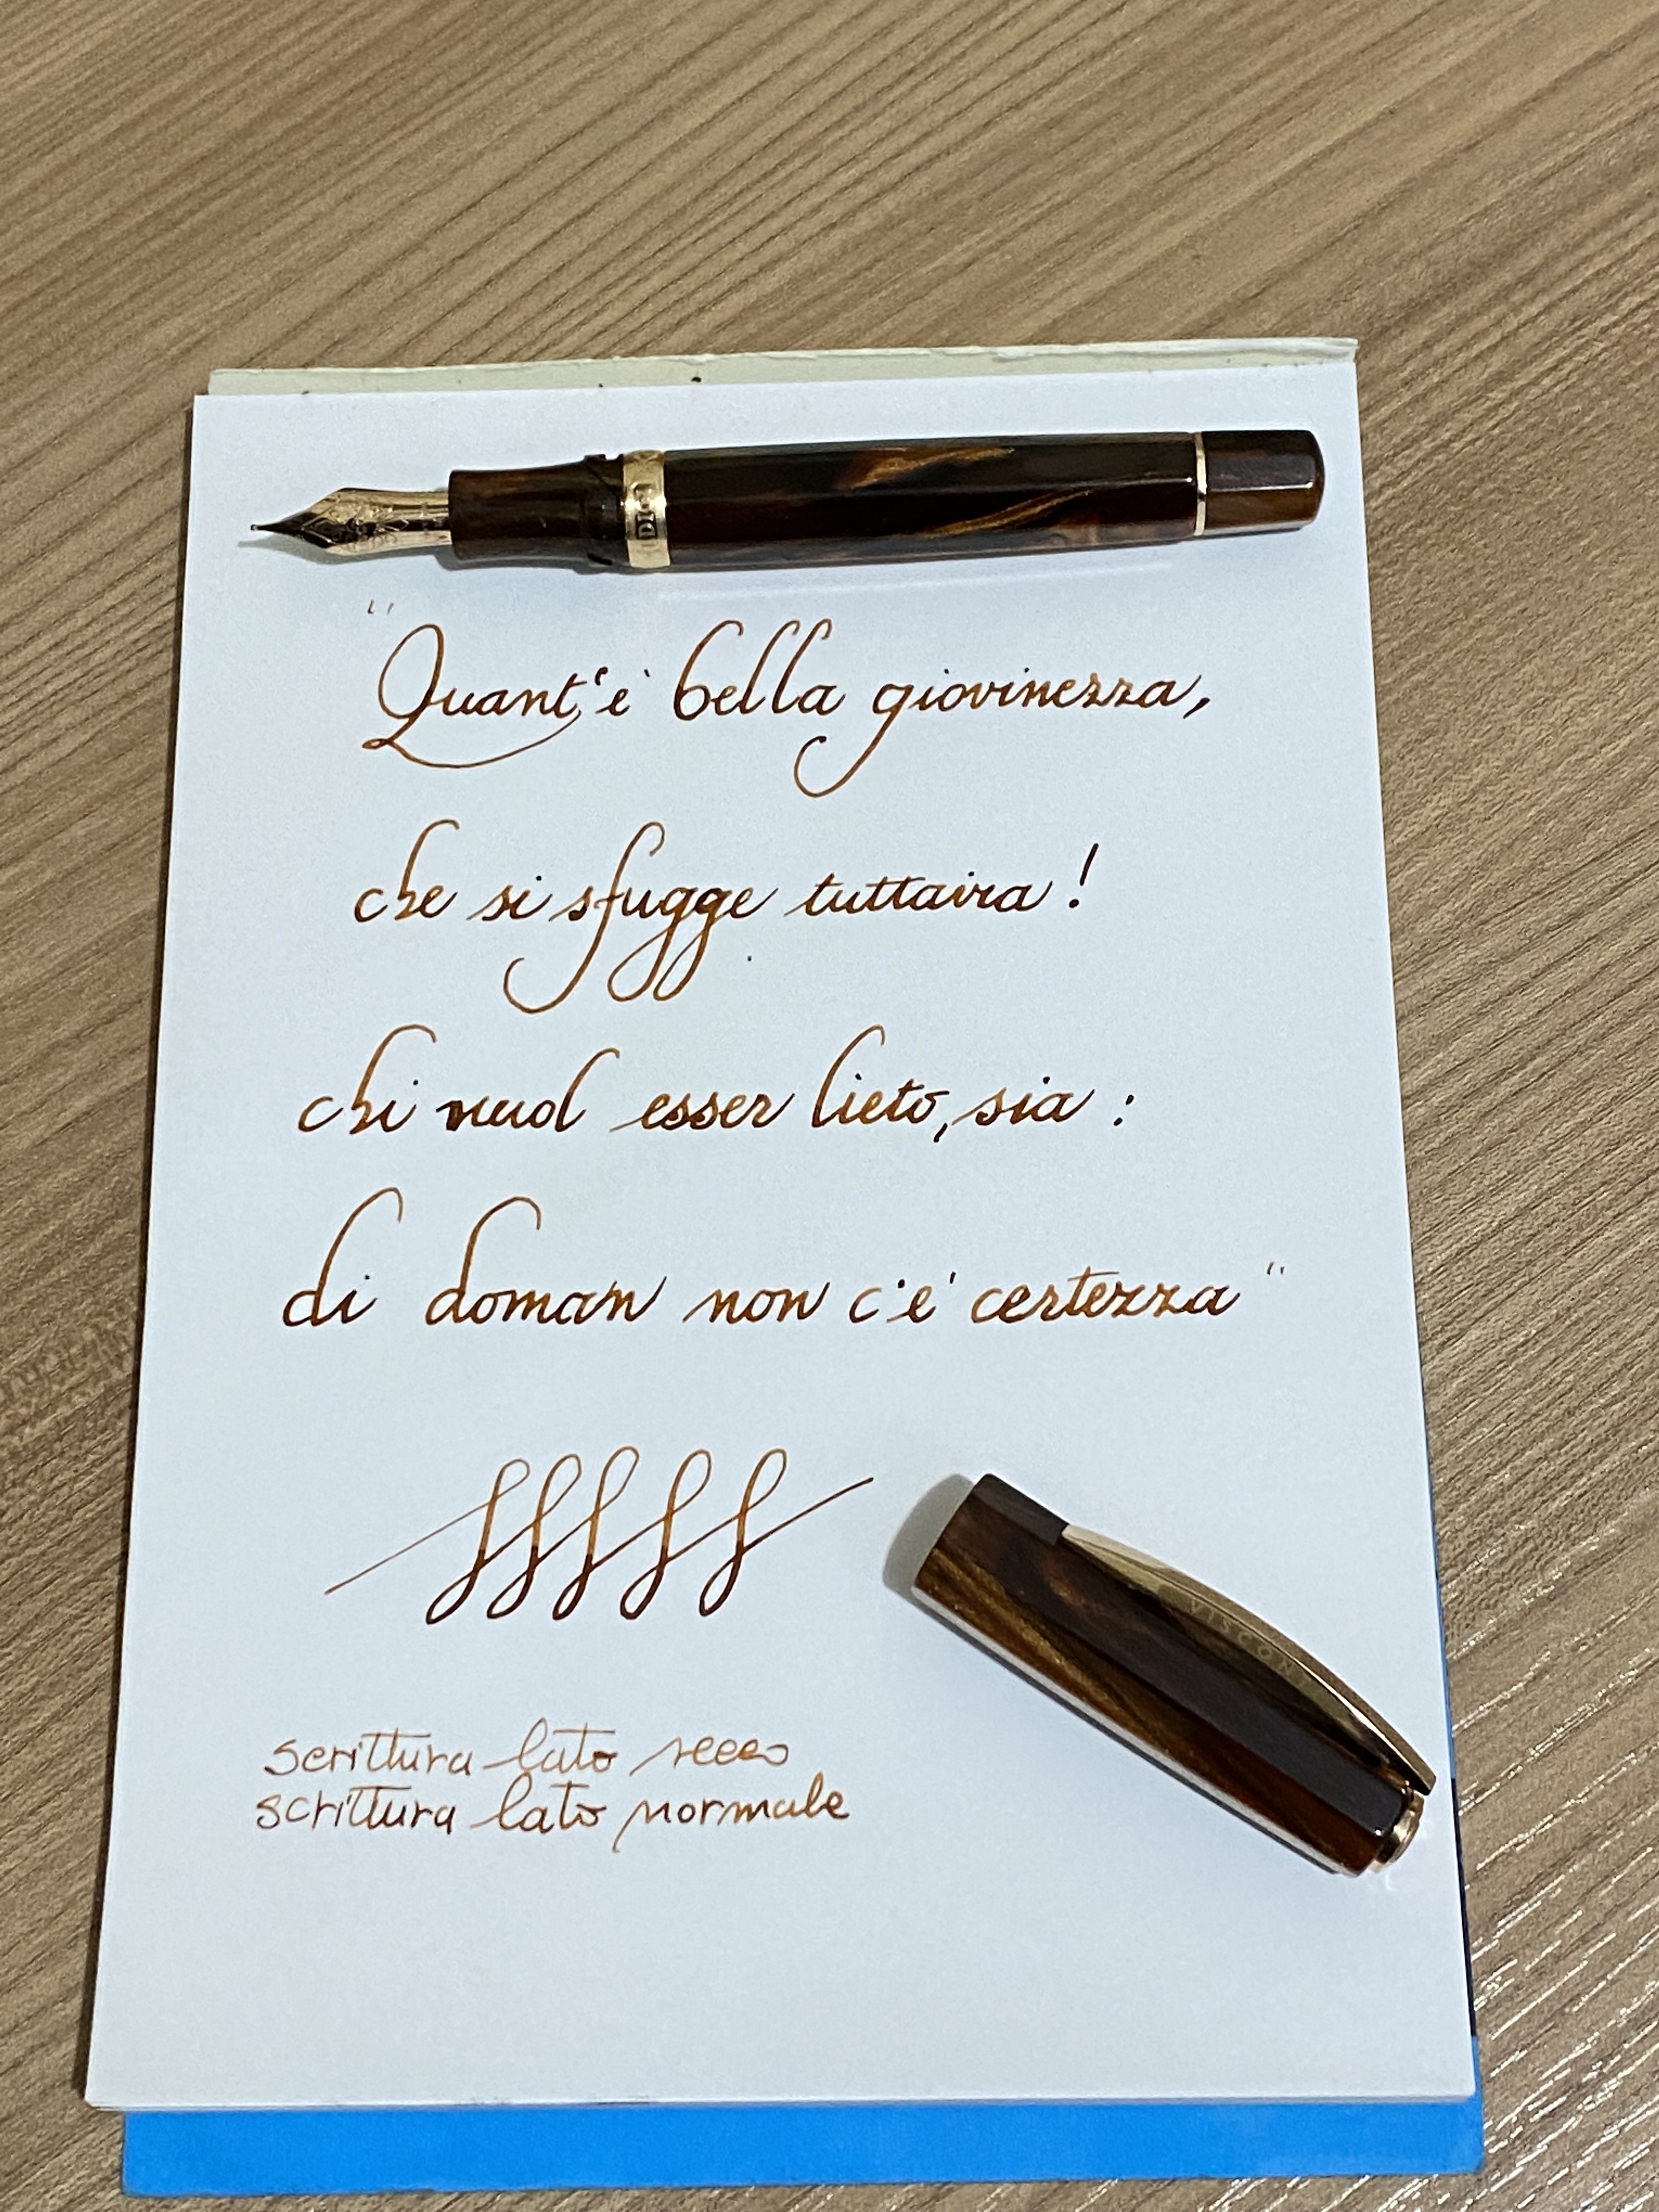 "Quant'è bella giovinezza,
che si sfugge tuttavia!
chi vuol esser lieto, sia:
di doman non c'è certezza"
scrittura lato secco
scrittura lato normale
VISCON